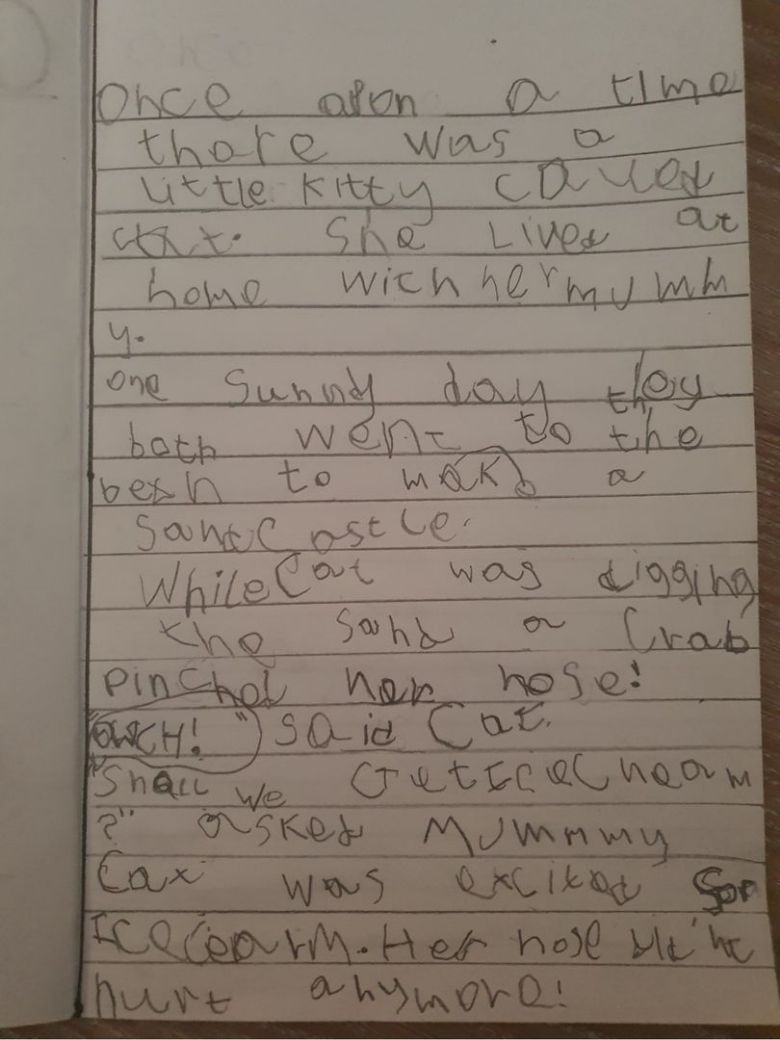 Once apon a time
thare was a
little kitty called
cat. She Lived at
home with her mumm
y.
one Sunny day they
both went to the
beach to make a
Santcastle.
While Cat was digging
the sand a Crab
pinched her nose!
"OWCH!" said Cat.
"Shall we Get Ice Chearm
?" asked Mummmy
Cat was excited for
Ice Cearm. Her nose did'nt
hurt anymore!